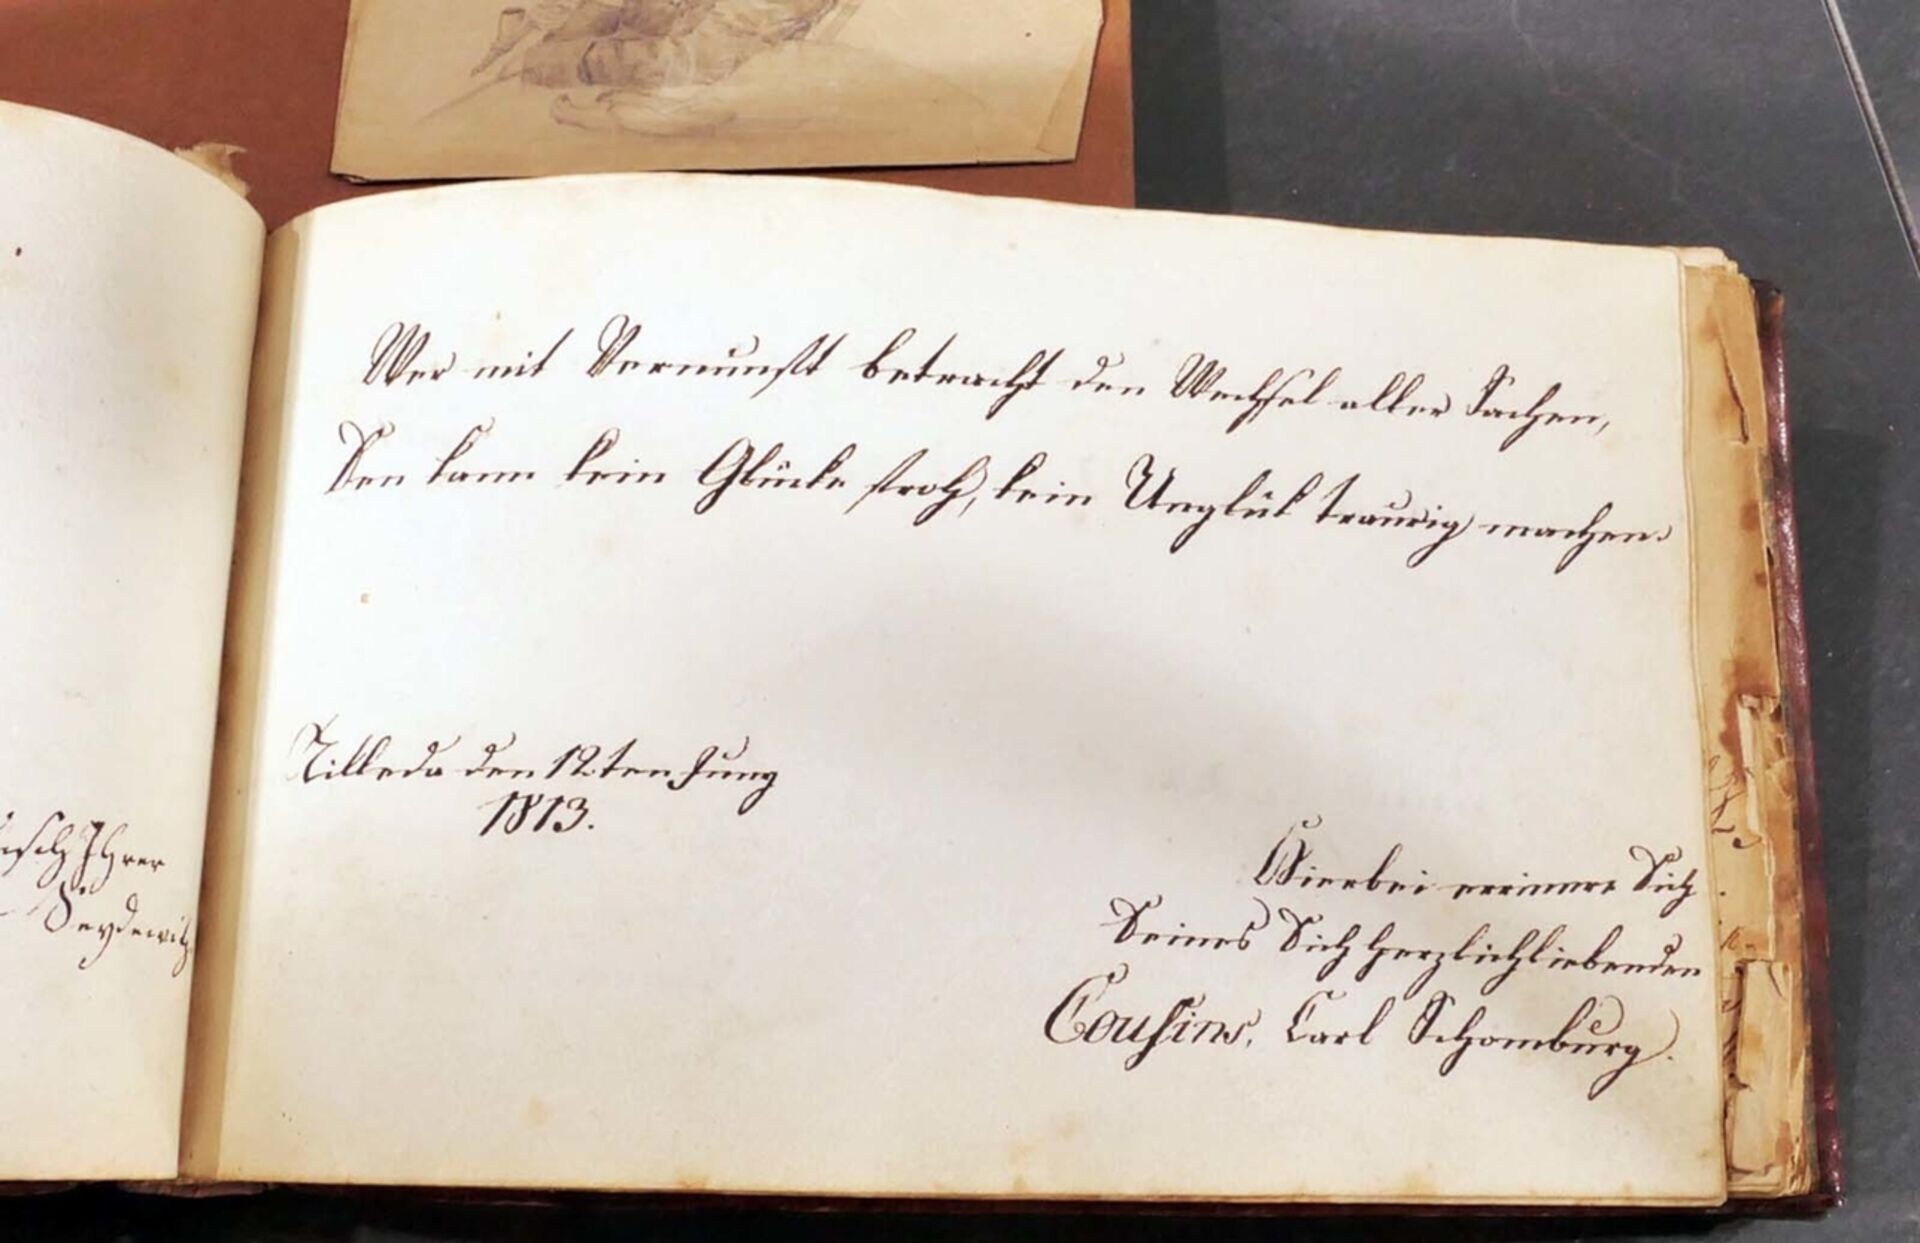 Ihrer
Seydewitz
Wer mit Vernunft betracht den Wechsel aller Sachen,
Den kann kein Glücke stolz, kein Unglük traurig machen.
Tilleda den 12ten Juny
1813.
Hierbei errinnere Dich
Deines Dich herzlichliebenden
Cousins, Carl Schomburg.